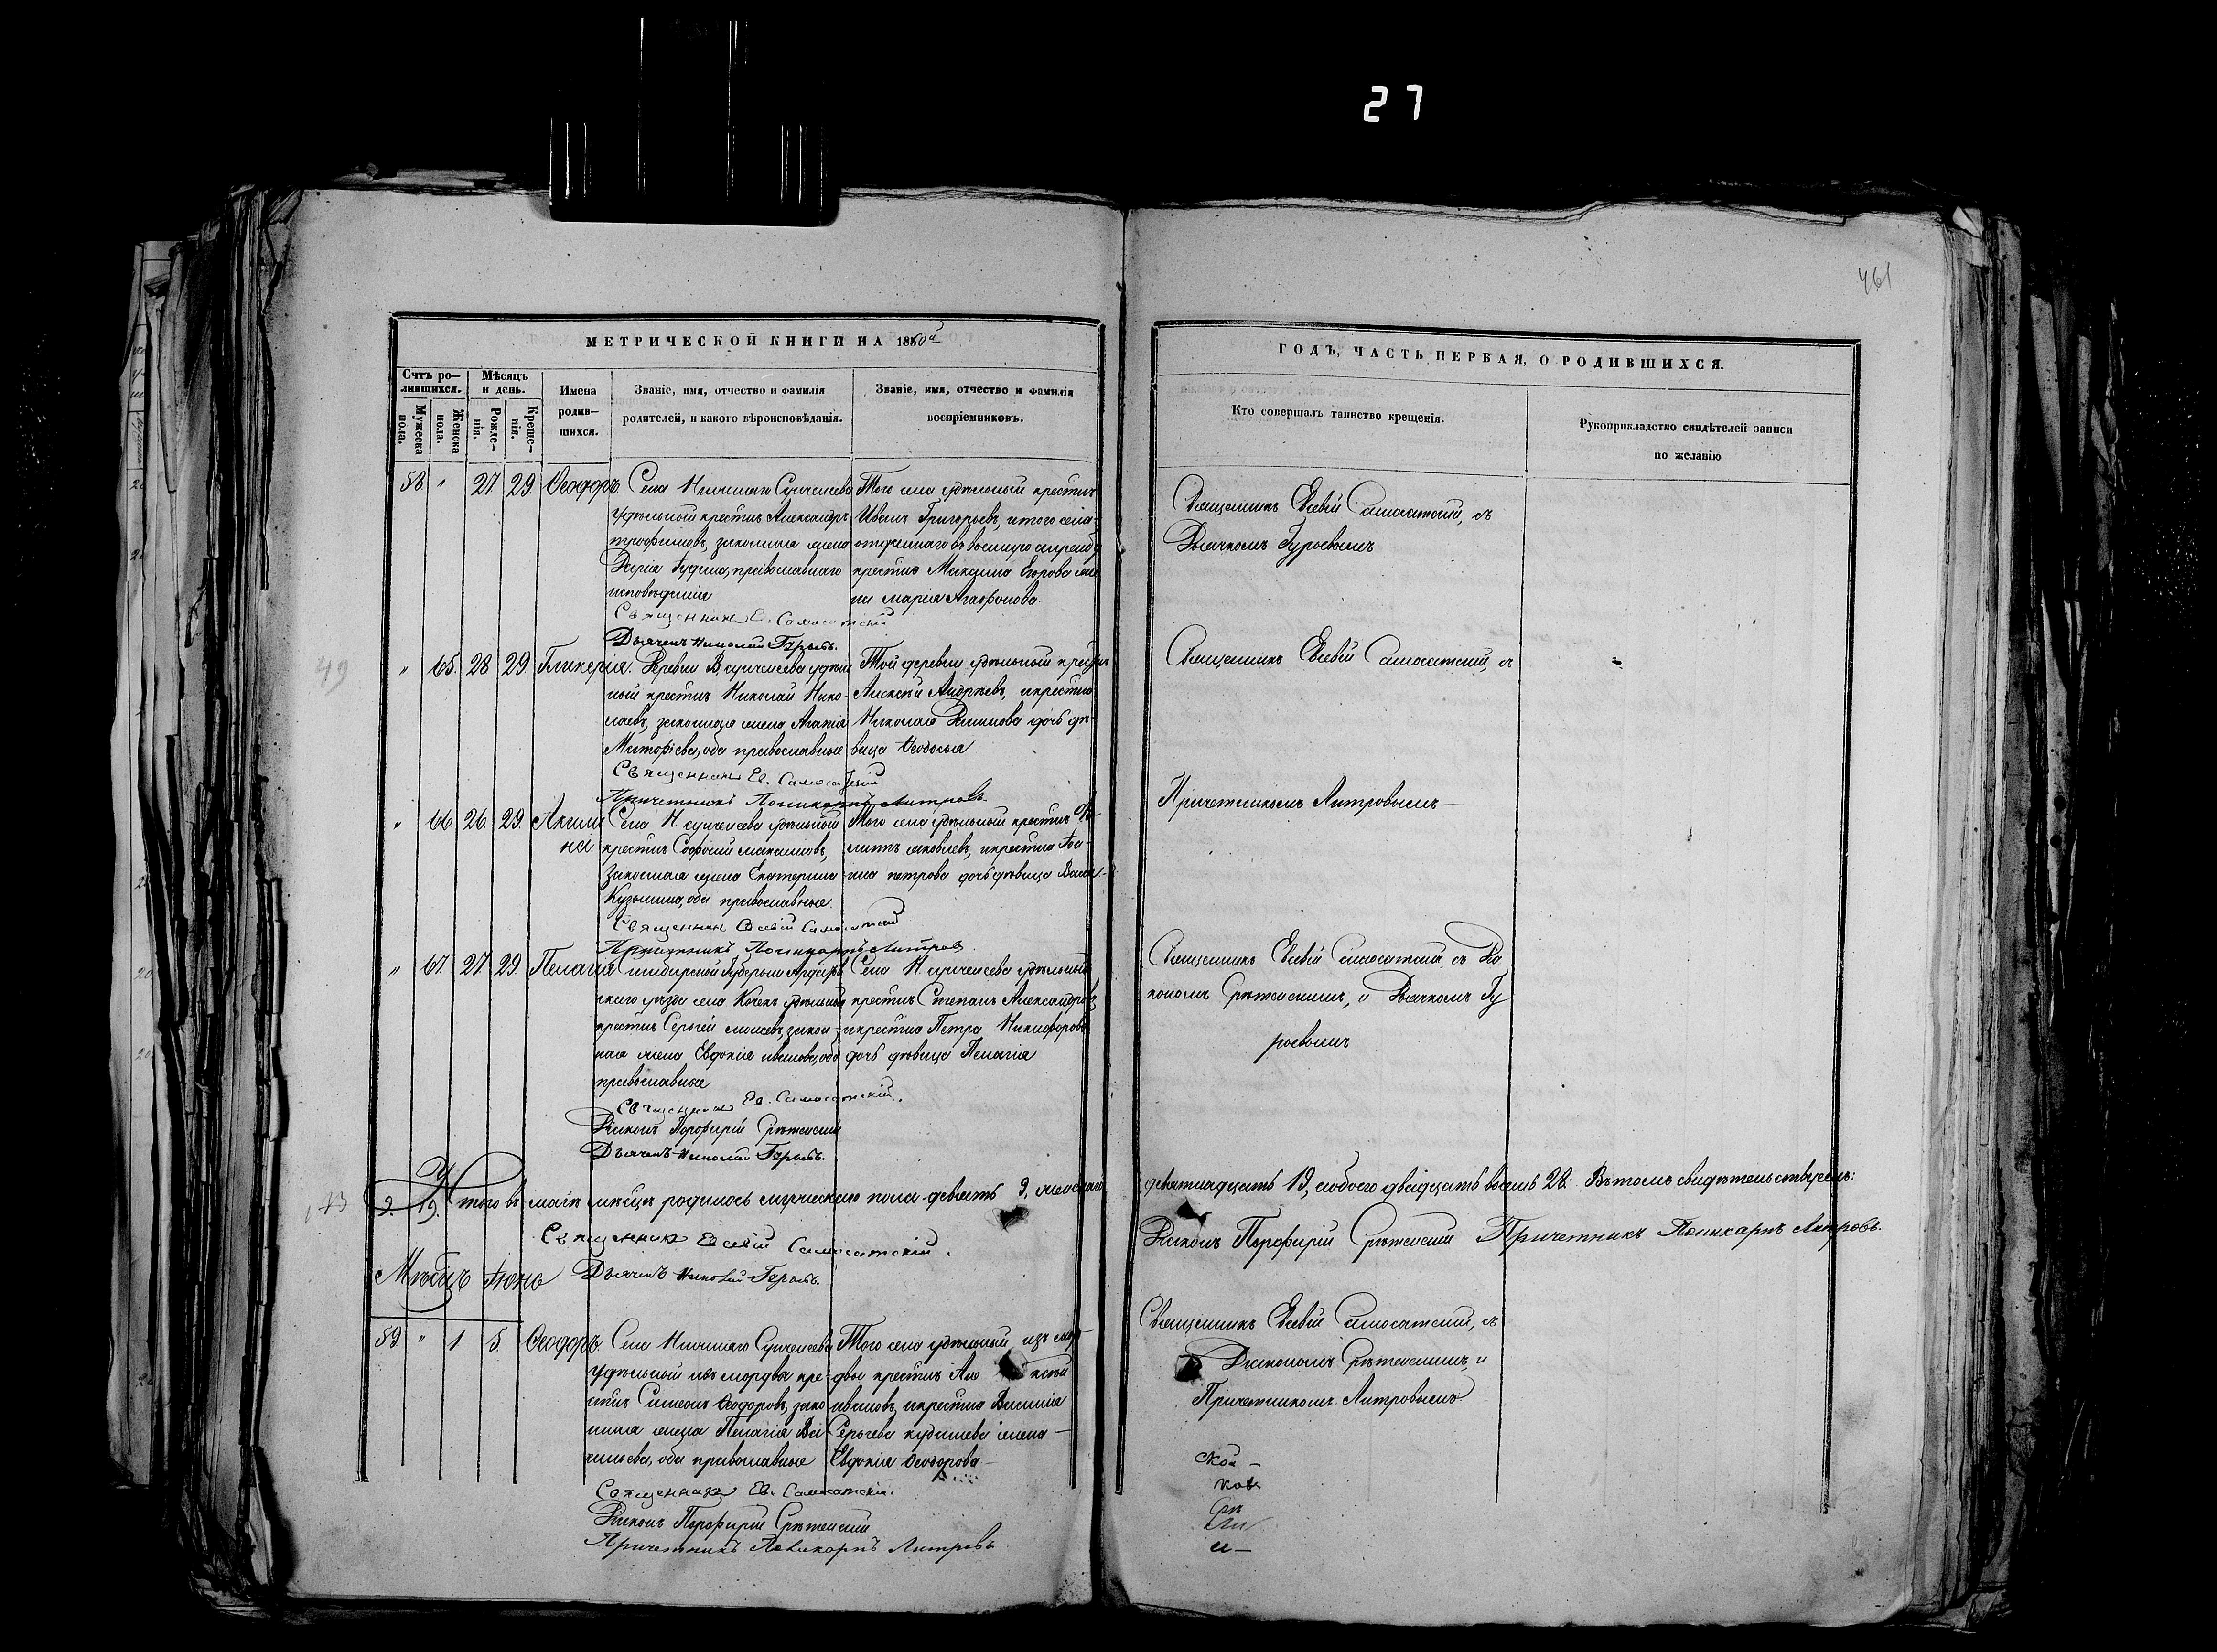 27
461
МЕТРИЧЕСКОЙ КНИГИ НА 1860й
ГОДЪ, ЧАСТЬ ПЕРВАЯ, О РОДИВШИХСЯ.
Счтъ ро-
дившихся.
Мужеска пола.
Женска пола.
Мѣсяцъ
и день.
Рожде-
нія.
Креще-
нія.
Имена
родив-
шихся.
Званіе, имя, отчество и фамилія
родителей, и какого вѣроисповѣданія.
Званіе, имя, отчество и фамилія
воспріемниковъ.
Кто совершалъ таинство крещенія.
Рукоприкладство свидѣтелей записи
по желанію
58 " 27 29 Ѳеодоръ.
Села Нижняго Сунчелеева
удѣльный крестнъ Александръ
трофимовъ, законная жена
Дарія, православнаго
исповѣданія
Священникъ Е. Самосатскій
Дьячекъ Николай Гурьевъ.
Того села удѣльный крестнъ
Иванъ Григорьевъ, итого села
крестна Максима Егорова
на марія Агафонова.
Священникъ Евсевій Самосатскій, съ
Дьячкомъ Гурьевымъ
49
" 65. 28 29 Гликерія.
Деревни В. сунчелеева удѣль
ный крестнъ Николай Нико-
лаевъ, законная жена Агапія
оба православные
Священникъ Ев. Самосатскій
Причетникъ Поликарпъ Литровъ.
Той деревни удѣльный крестнъ
Алексѣй Андреевъ, икрестна
Николая дочь дѣ-
вица Ѳеодосья
Священникъ Евсевій Самосатскій, съ
Причетникомъ Литровымъ
" 66 26. 29. Акили
на.
Села Н. сунчелеева удѣльный
крестнъ максимовъ,
Законная жена Екатерина
Кузьмина, оба православные.
Священникъ Евсевій Самосатскій
Причетникъ Поликарпъ Литровъ.
Того села удѣльный крестнъ Фи-
липпъ яковлевъ, икрестна
петрова дочь дѣвица
" 67 27 29 Пелагія
Симбирской Губерніи
скаго уѣзда села удѣльный
крестнъ Сергей законн
ная жена Евдокія иванова, оба
православные
Священникъ Ев. Самосатскій.
Діаконъ Порфирій Срѣтенскій
Дьячекъ Николай Гурьевъ.
Села Н. сунчелеева удѣльный
крестнъ Степанъ Александровъ,
икрестна Петра Никифорова
дочь дѣвица Пелагія
Священникъ Евсевій Самосатскій съ Діа
кономъ Срѣтенскимъ, и Дьячкомъ Гу
рьевымъ
9. 19. Итого въ маіѣ мѣсяцѣ родилось мужескаго пола девять 9, женскаго
девятнадцать 19, иобоего двадцать восемь 28: Вътомъ свидѣтельствуемъ:
Священникъ Евсевій Самосатскій.
Діаконъ Порфирій Срѣтенскій Причетникъ Поликарпъ Литровъ.
Дьячекъ Николай Гурьевъ.
Мѣсяцъ Іюнь
59 " 1 5. Ѳеодоръ.
Села Нижняго Сунчелеева
Удѣльный изъ мордвы кре-
стнъ Симеонъ Ѳеодоровъ, зако
нная жена Пелагія Ва
сильева, оба православные
Священникъ Ев. Самосатскій.
Діаконъ Порфирій Срѣтенскій
Причетникъ Поликарпъ Литровъ
Того села удѣльный изъ мор-
двы крестнъ Але ксѣй
ивановъ, икрестна Василія
Сергеева жена
Евдокія Ѳеодорова
Священникъ Евсевій Самосатскій, съ
Діакономъ Срѣтенскимъ, и
Причетникомъ Литровымъ
ской -
ковъ
Срѣ
Ли
и -